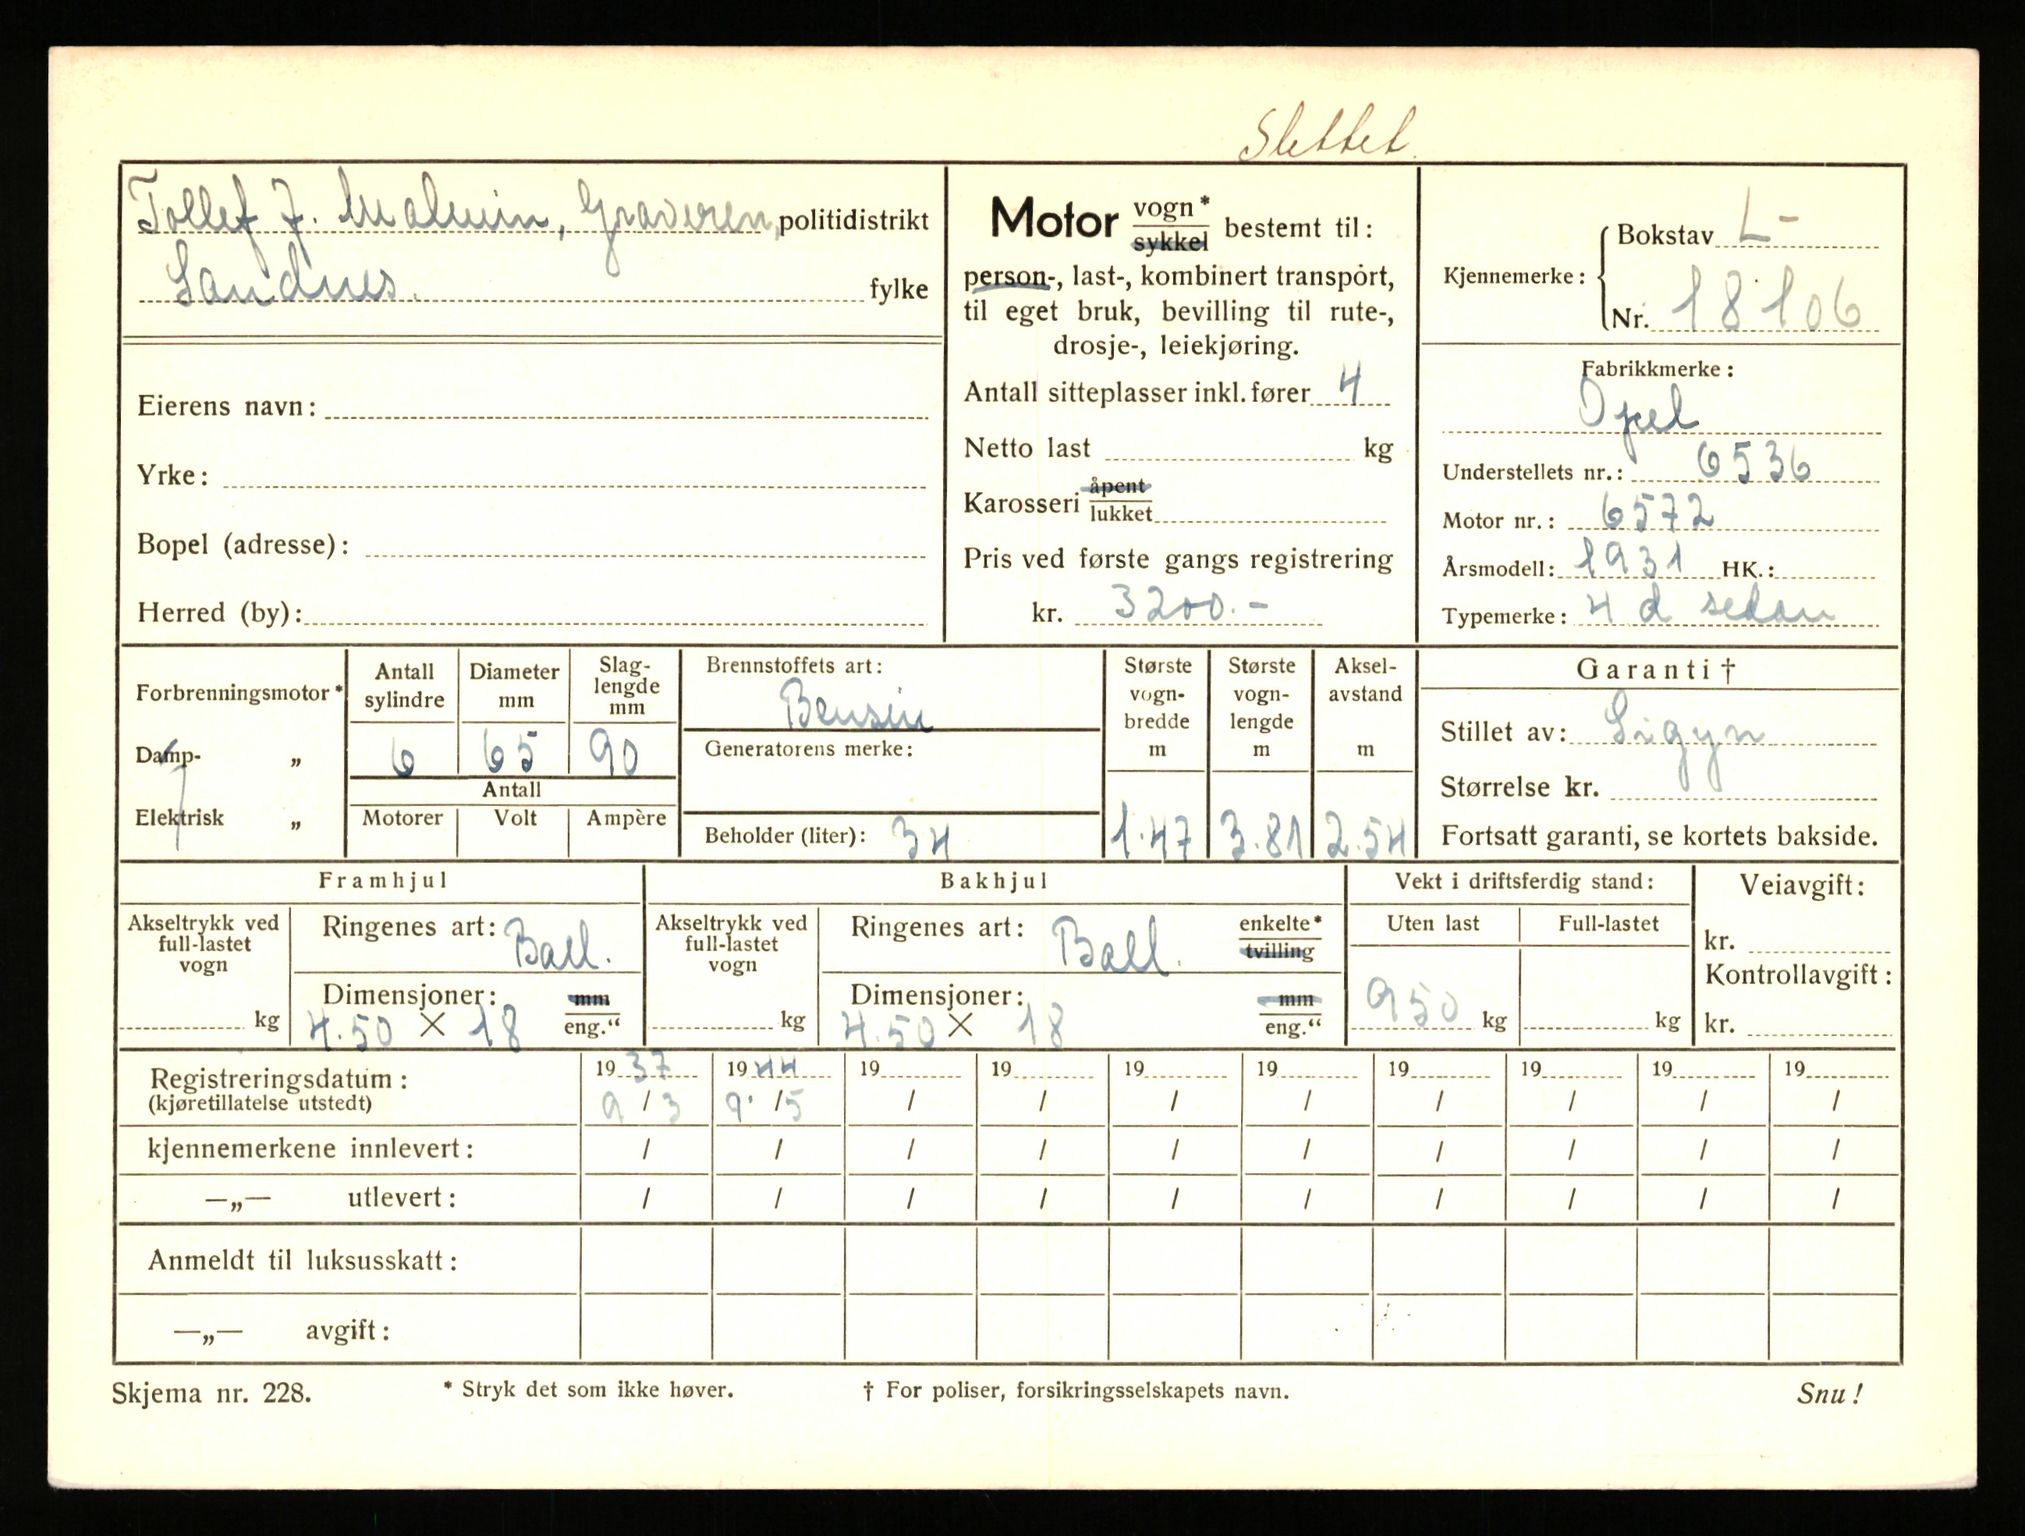 Slettet.
Tollef J. Malmin, Graveren, politidistrikt
Sandnes. fylke
Eierens navn:
Yrke:
Bopel (adresse):
Herred (by):
Motor vogn* sykkel bestemt til:
person-, last-, kombinert transport,
til eget bruk, bevilling til rute-,
drosje-, leiekjøring.
Antall sitteplasser inkl. fører 4
Netto last kg
Karosseri åpent lukket
Pris ved første gangs registrering
kr. 3200.-
Kjennemerke: Bokstav L-
Nr. 18106
Fabrikkmerke:
Opel
Understellets nr.: 6536
Motor nr.: 6572
Årsmodell: 1931 HK.:
Typemerke: 4 d sedan
Forbrenningsmotor*
Damp- „
Elektrisk „
Antall sylindre
6
Diameter mm
65
Slag-lengde mm
90
Antall
Motorer Volt Ampère
Brennstoffets art:
Bensin
Generatorens merke:
Beholder (liter): 34
Største vogn-bredde m
1.47
Største vogn-lengde m
3.81
Aksel-avstand m
2.54
Garanti †
Stillet av: Sigyn
Størrelse kr.
Fortsatt garanti, se kortets bakside.
Framhjul
Akseltrykk ved full-lastet vogn
kg
Ringenes art: Ball.
Dimensjoner: mm
4.50 × 18 eng.“
Bakhjul
Akseltrykk ved full-lastet vogn
kg
Ringenes art: Ball. enkelte* tvilling
Dimensjoner: mm
4.50 × 18 eng.“
Vekt i driftsferdig stand:
Uten last Full-lastet
950 kg kg
Veiavgift:
kr.
Kontrollavgift:
kr.
Registreringsdatum: 1937 1944 19 19 19 19 19 19 19 19
(kjøretillatelse utstedt) 9/3 9./5 / / / / / / / /
kjennemerkene innlevert: / / / / / / / / / /
—„— utlevert: / / / / / / / / / /
Anmeldt til luksusskatt:
—„— avgift:
Skjema nr. 228. * Stryk det som ikke høver. † For poliser, forsikringsselskapets navn. Snu!